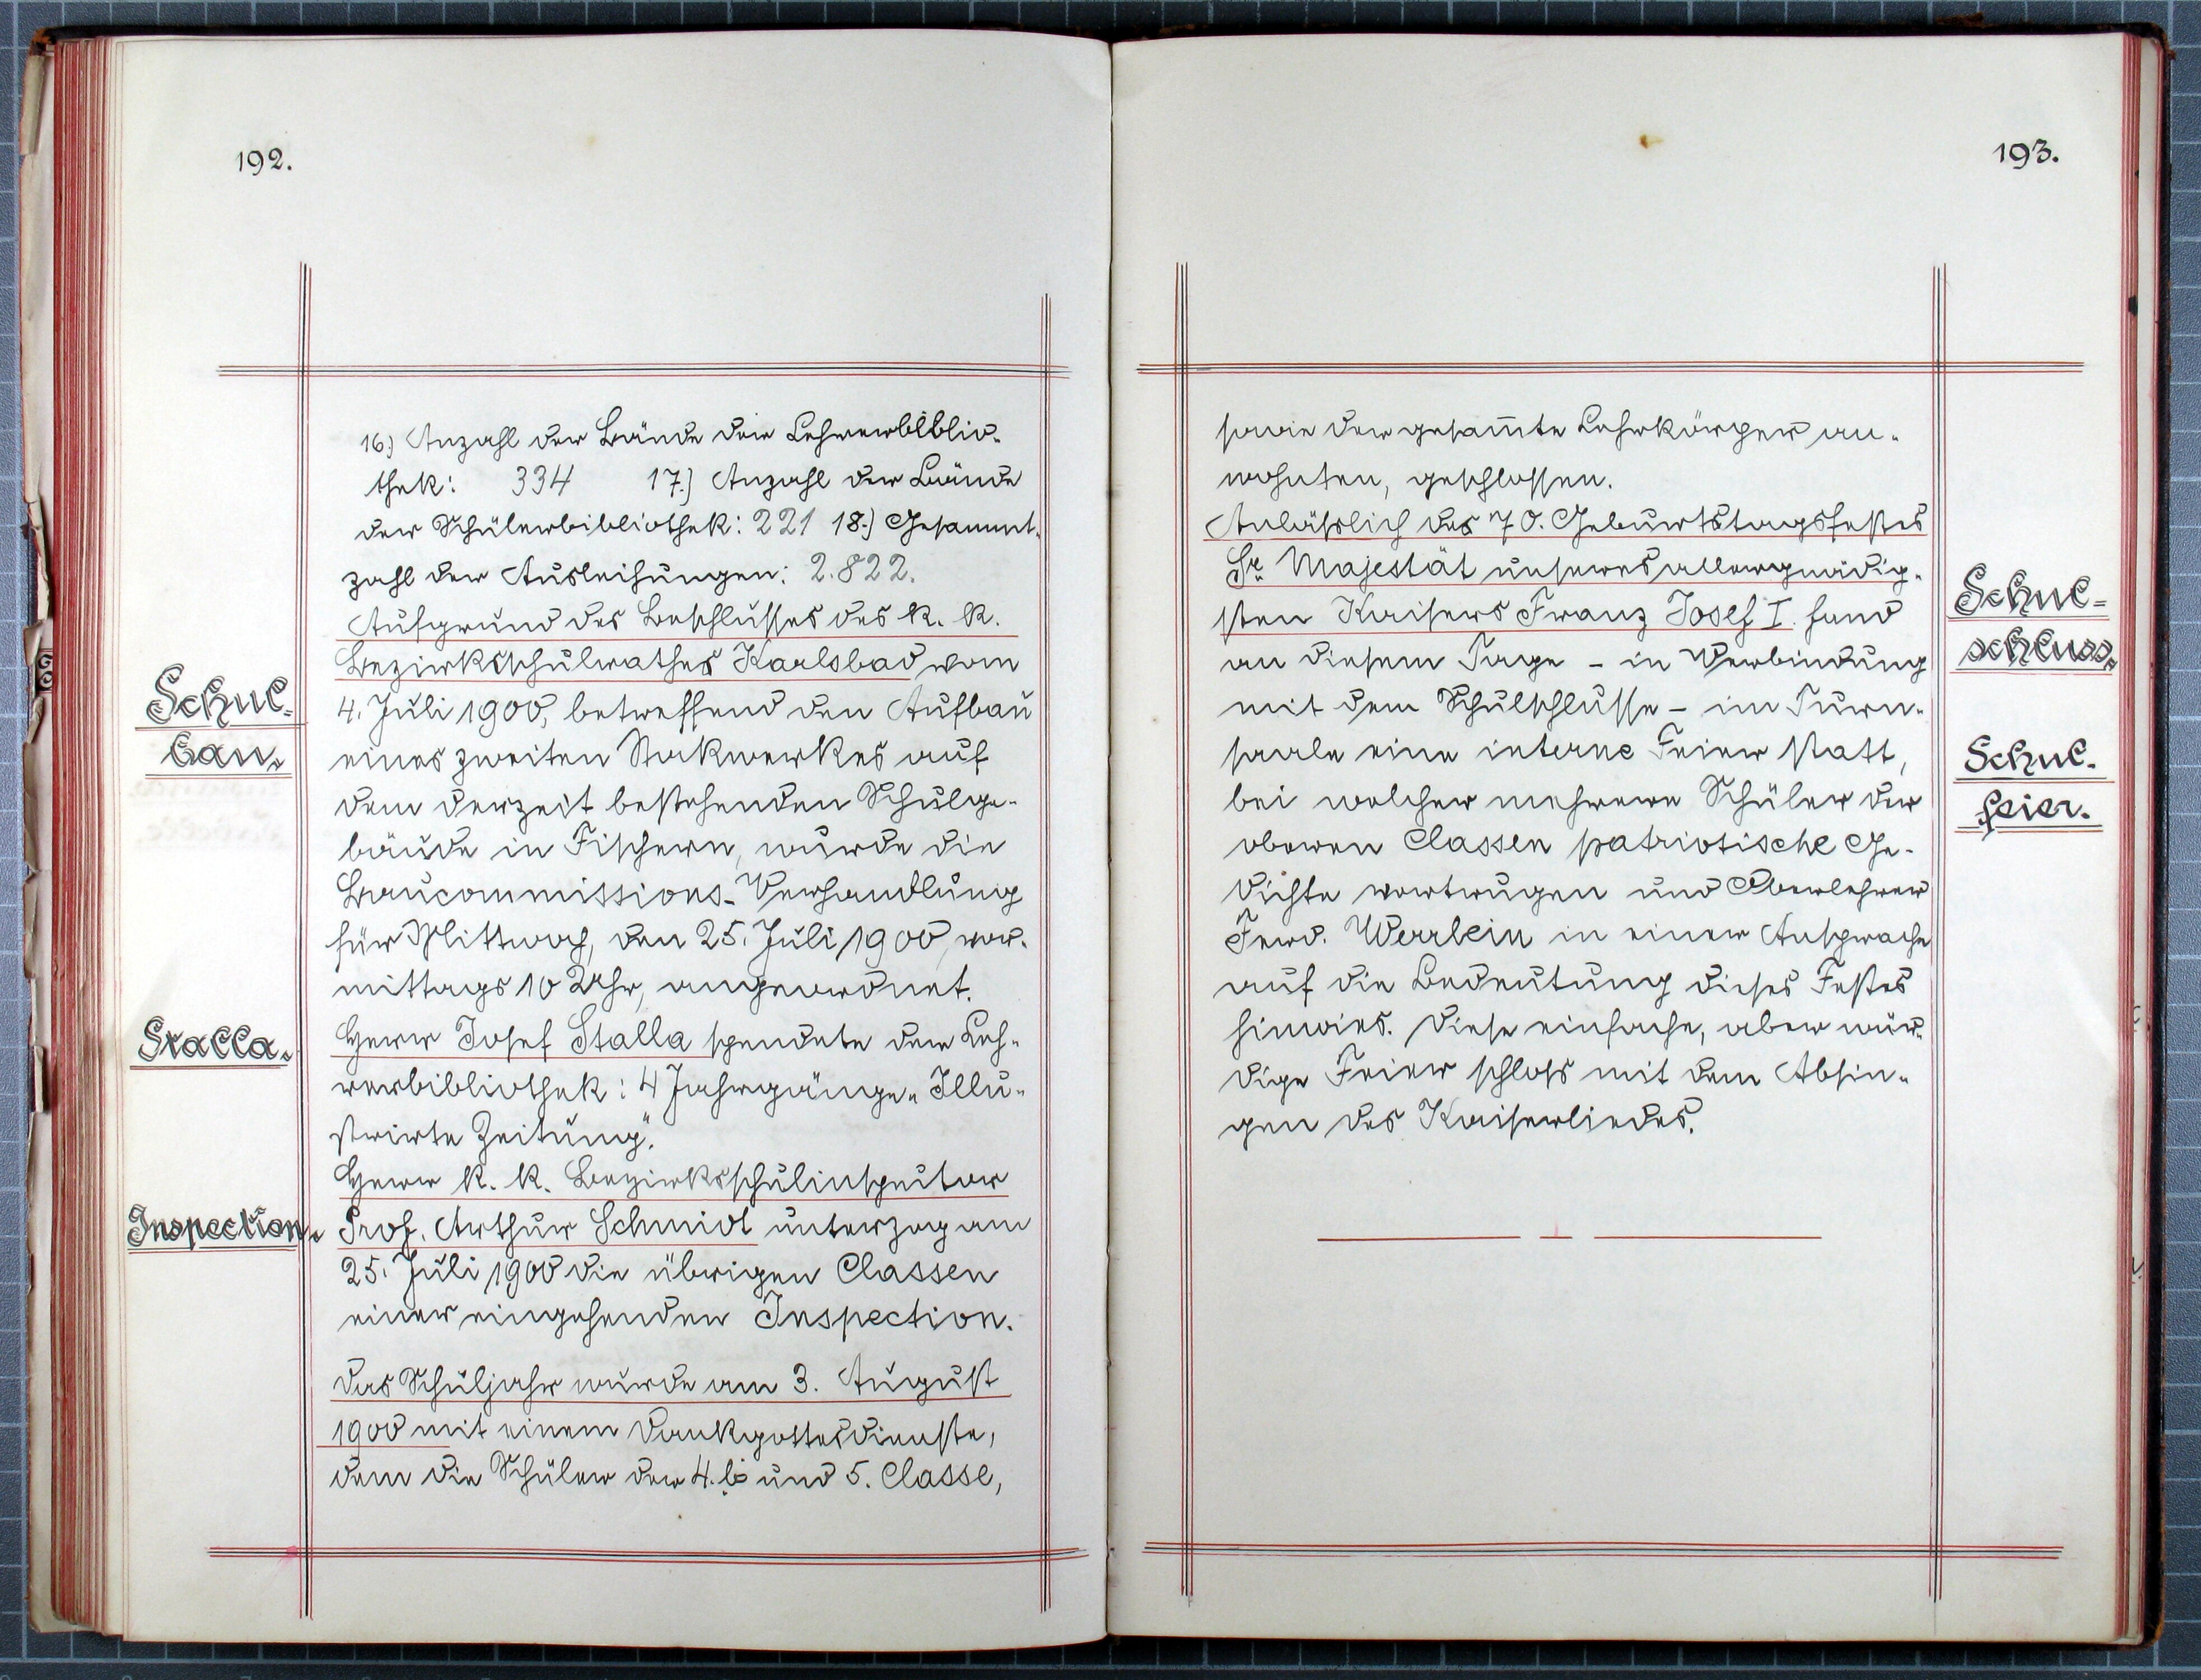 192.
16.) Anzahl der Bände der Lehrerbiblio-
thek: 334 17.) Anzahl der Bände
der Schülerbibliothek: 221 18.) Gesammt-
zahl der Ausleihungen: 2.822.
Aufgrund des Beschlusses des k. k.
Bezirksschulrathes Karlsbad vom
4. Juli 1900, betreffend den Aufbau
eines zweiten Stockwerkes auf
dem derzeit bestehenden Schulge-
bäude in Fischern, wurde die
Baucommissions-Verhandlung
für Mittwoch, den 25. Juli 1900, vor-
mittags 10 Uhr, angeordnet.
Herr Josef Stalla spendete der Leh-
rerbibliothek: 4 Jahrgänge „Illu-
strirte Zeitung".
Herr k. k. Bezirksschulinspector
Prof. Arthur Schmidt unterzog am
25. Juli 1900 die übrigen Classen
einer eingehenden Inspection.
Das Schuljahr wurde am 3. August
1900 mit einem Dankgottesdienste,
dem die Schüler der 4. b und 5. Classe,
Schul-
bau.
Stalla.
Inspection.
193.
sowie der gesam̅te Lehrkörper an-
wohnten, geschlossen.
Anläßlich des 70. Geburtstagsfestes
Sr. Majestät unseres allergnädig-
sten Kaisers Franz Josef I. fand
an diesem Tage - in Verbindung
mit dem Schulschlusse - im Turn-
saale eine interne Feier statt,
bei welcher mehrere Schüler der
oberen Classen patriotische Ge-
dichte vortrugen und Oberlehrer
Ferd. Werrlein in einer Ansprache
auf die Bedeutung dieses Festes
hinwies. Diese einfache, aber wür-
dige Feier schloß mit dem Absin-
gen des Kaiserliedes.
Schul-
schluss.
Schul-
feier.